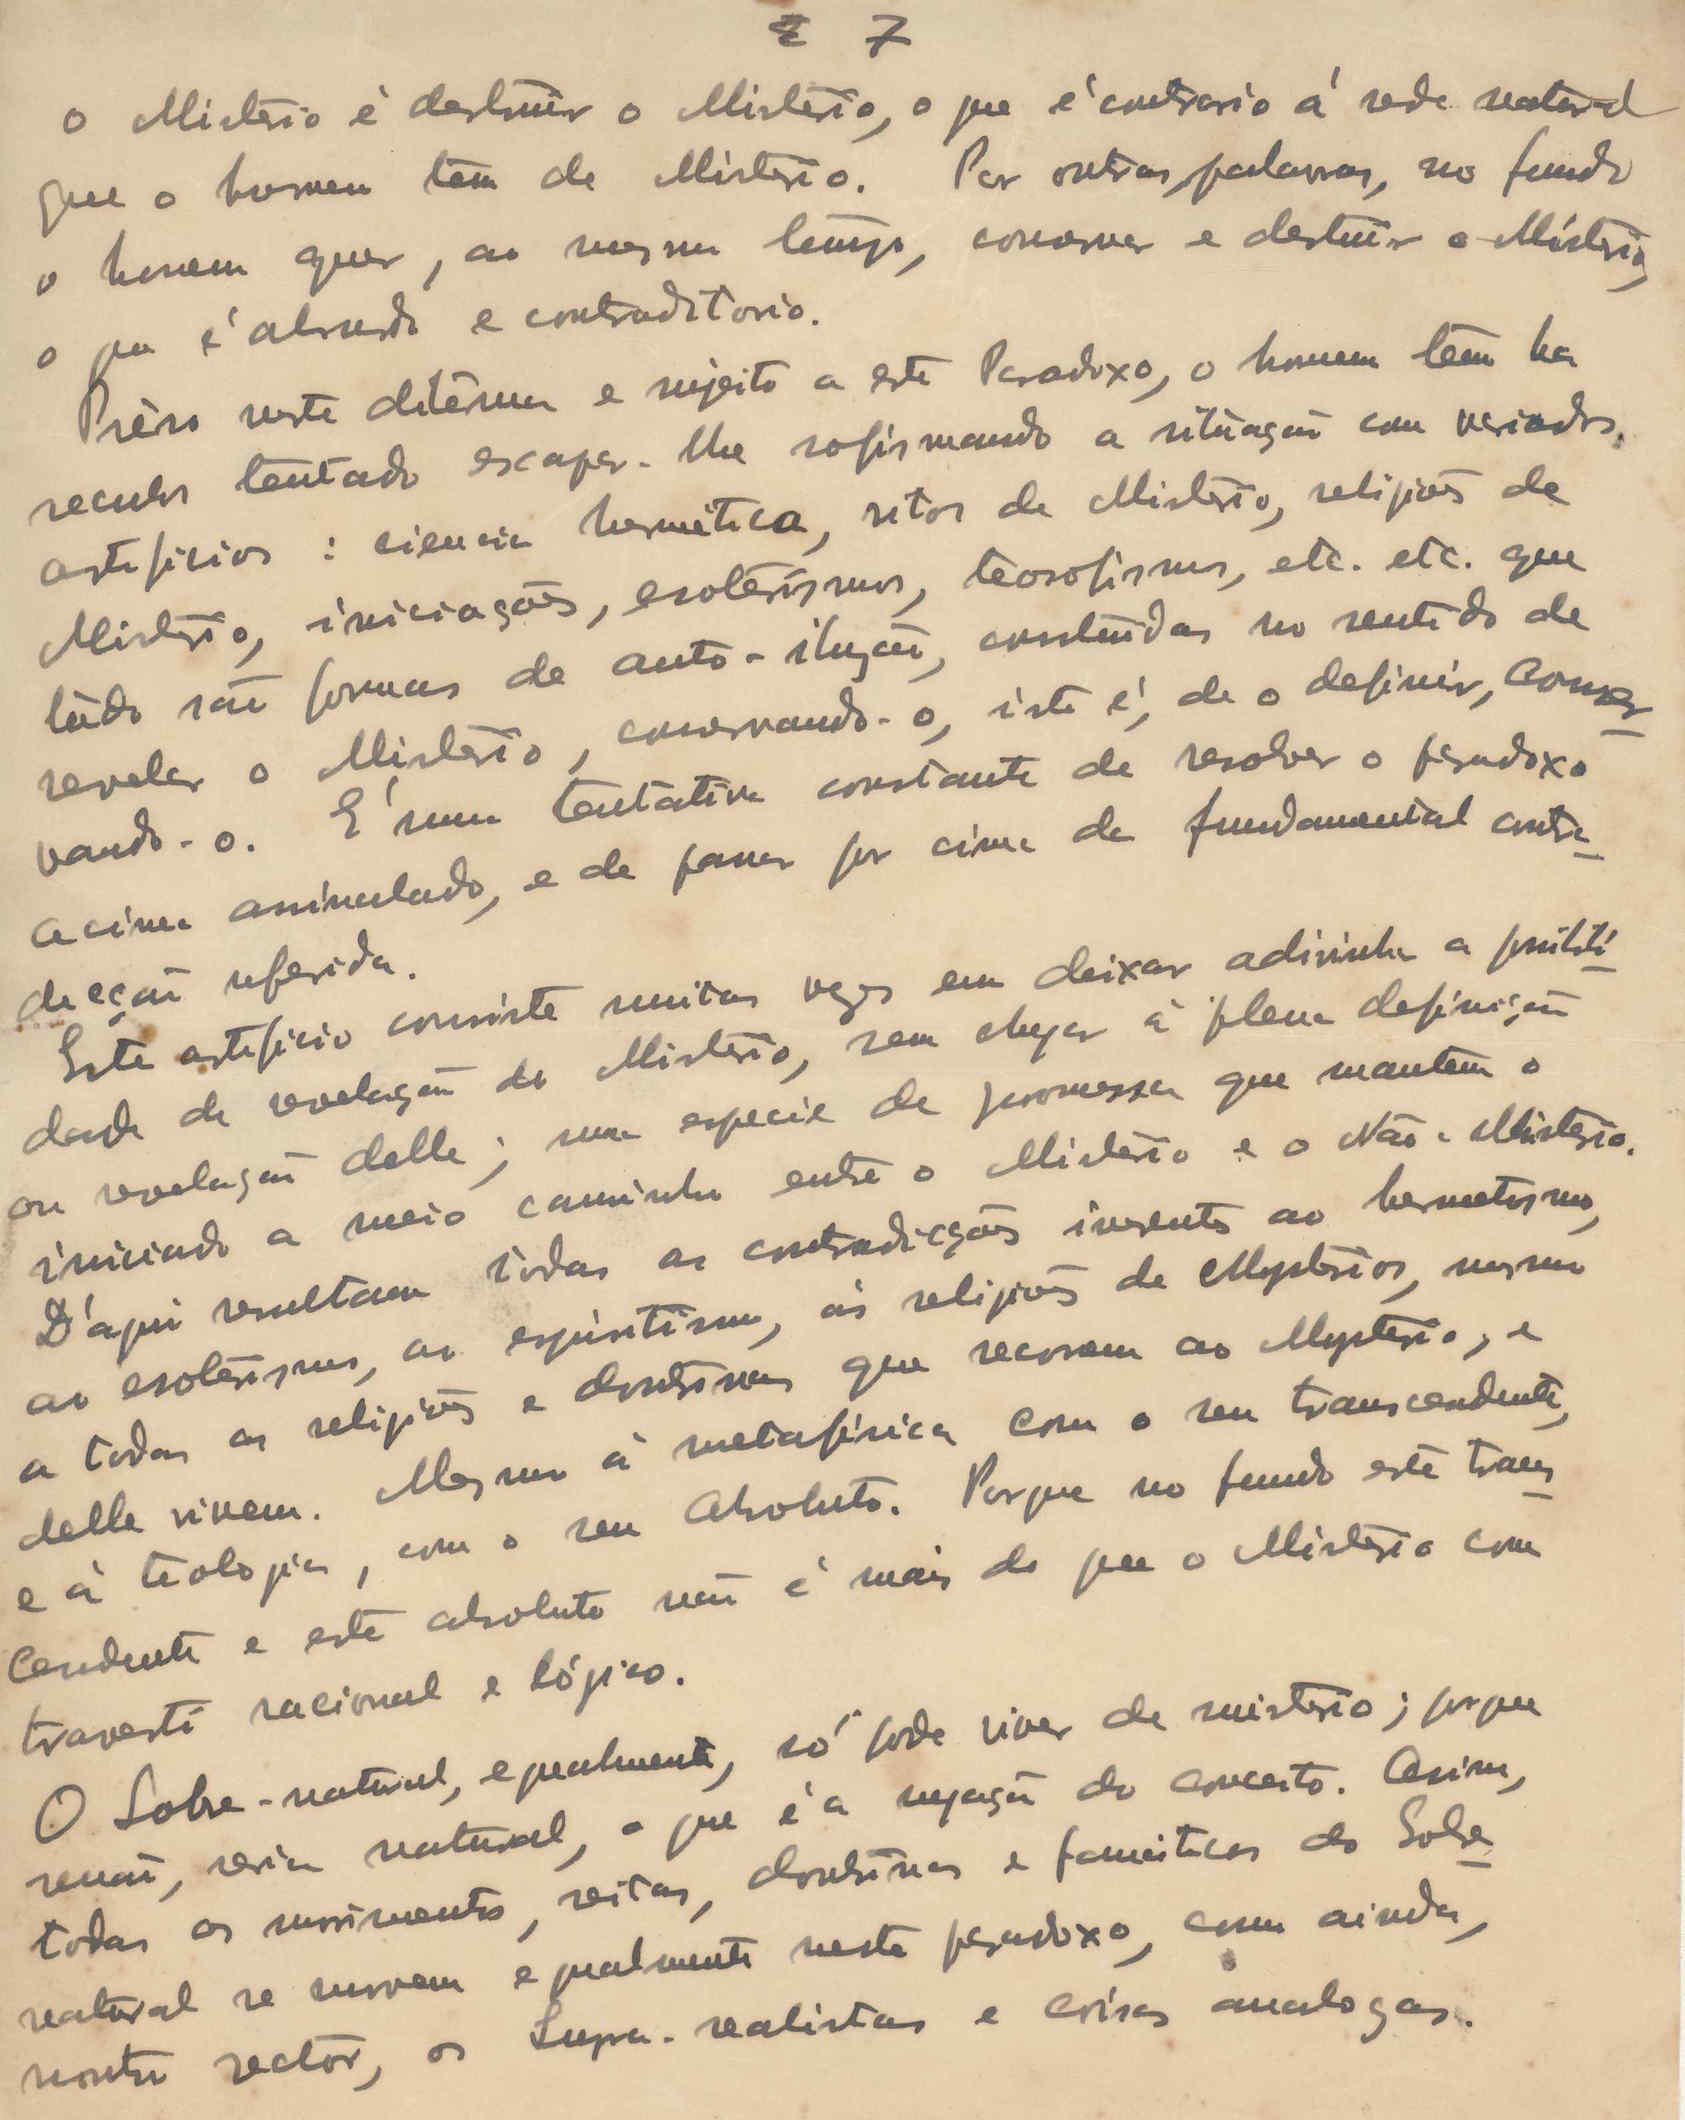 7
o Mistério é destruir o Mistério, o que é contrario á sede natural
que o homem tem de Mistério. Por outras palavras, no fundo
o homem quer, ao mesmo tempo, conservar e destruir o Mistério,
o que é absurdo e contraditorio.
Prêso neste dilêma e sujeito a este Paradoxo, o homem tem ha
seculos tentado escapar-lhe sofismando a situação com variados
artificios: ciencia hermética, ritos de Mistério, religiões de
Mistério, iniciações, esoterismos, teosofismos, etc. etc. que
tudo são formas de auto-ilusão, construidas no sentido de
revelar o Mistério, conservando-o, isto é, de o definir, conser
vando-o. É uma tentativa constante de resolver o paradoxo
acima assinalado, e de passar por cima da fundamental contra-
dicção referida.
Este artificio consiste muitas vezes em deixar adivinhar a possibili
dade da revelação do Mistério, sem chegar á plena definição
ou revelação delle; uma especie de promessa que mantem o
iniciado a meio caminho entre o Mistério e o Não-Mistério.
D'aqui resultam todas as contradicções inerentes ao hermetismo,
ao esoterismo, ao espiritismo, ás religiões de Mysterios, mesmo
a todas as religiões e doutrinas que recorrem ao Mysterio, e
delle vivem. Mesmo á metafisica com o seu transcendente,
e á teologia, com o seu Absoluto. Porque no fundo este trans
cendente e este absoluto não é mais do que o Mistério com
travesti racional e lógico.
O Sobre-natural, egualmente, só pode viver de misterio; porque
senão, seria natural, o que é a negação do conceito. Assim,
todos os movimentos, seitas, doutrinas e fanaticos do Sobre
natural se movem egualmente neste paradoxo, como ainda,
noutro sector, os Supra-realistas e coisas analogas.